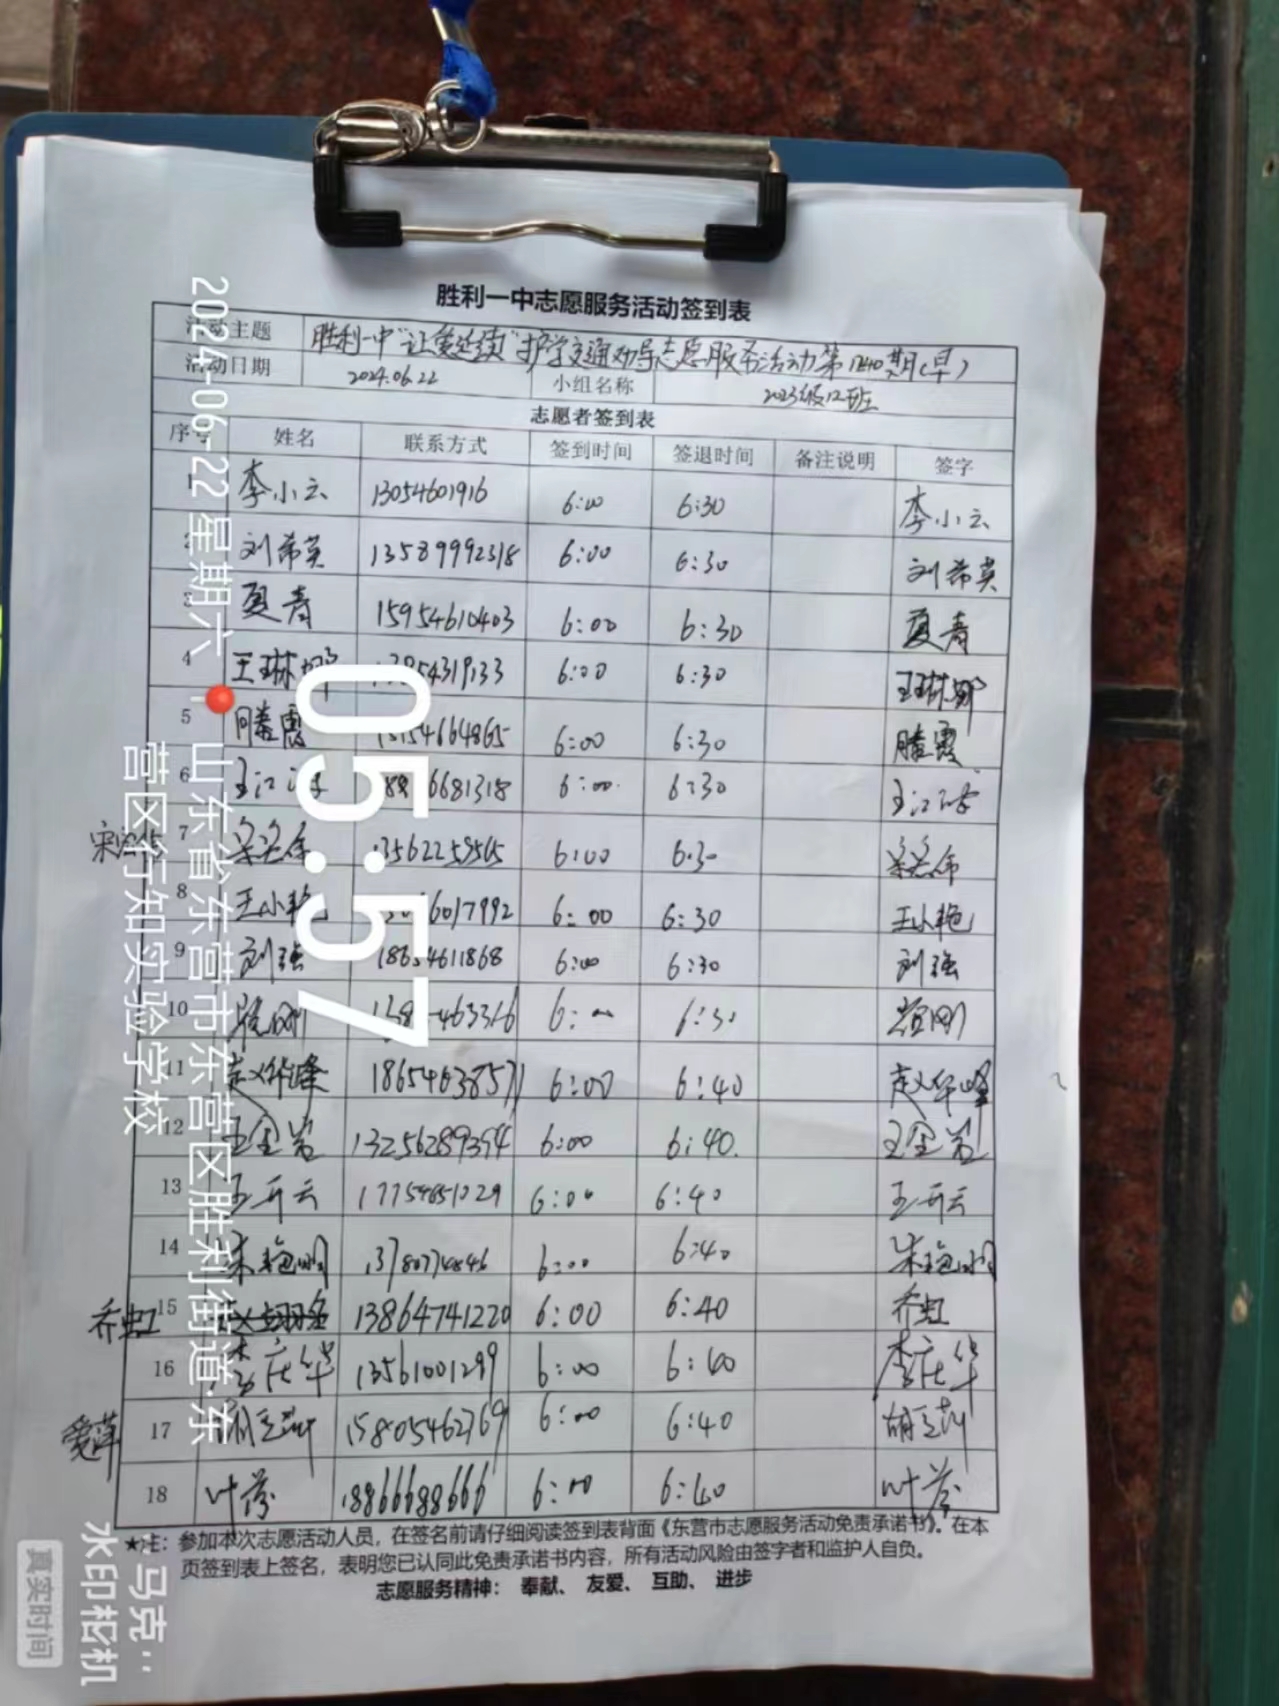 胜利一中志愿服务活动签到表
活动主题 胜利一中"让爱延续"护学交通劝导志愿服务活动第1240期(早)
活动日期 2024.06.22 小组名称 2023级12班
志愿者签到表
序号 姓名 联系方式 签到时间 签退时间 备注说明 签字
1 李小云 13054601916 6:00 6:30 李小云
2 刘希英 13589992318 6:00 6:30 刘希英
3 夏青 15954610403 6:00 6:30 夏青
4 王琳娜 6:00 6:30 王琳娜
5 滕霞 6:00 6:30 滕霞
6 6:00 6:30
7 6:00 6:30
8 王小艳 6:00 6:30 王小艳
9 刘强 18654611868 6:00 6:30 刘强
10 6:00 6:30
11 赵华峰 6:00 6:40 赵华峰
12 王金岩 13256289394 6:00 6:40. 王金岩
13 王开云 6:00 6:40 王开云
14 朱艳明 6:00 6:40 朱艳明
乔虹 15 13864741220 6:00 6:40 乔虹
16 李庆华 13561001299 6:00 6:40 李庆华
爱萍 17 15805462769 6:00 6:40
18 叶蓉 18866688666 6:00 6:40 叶蓉
★注: 参加本次志愿活动人员，在签名前请仔细阅读签到表背面《东营市志愿服务活动免责承诺书》。在本
页签到表上签名，表明您已认同此免责承诺书内容，所有活动风险由签字者和监护人自负。
志愿服务精神: 奉献、 友爱、 互助、 进步
05:57
2024-06-22 星期六
山东省东营市东营区胜利街道·东
营区行知实验学校
马克
水印相机
真实时间